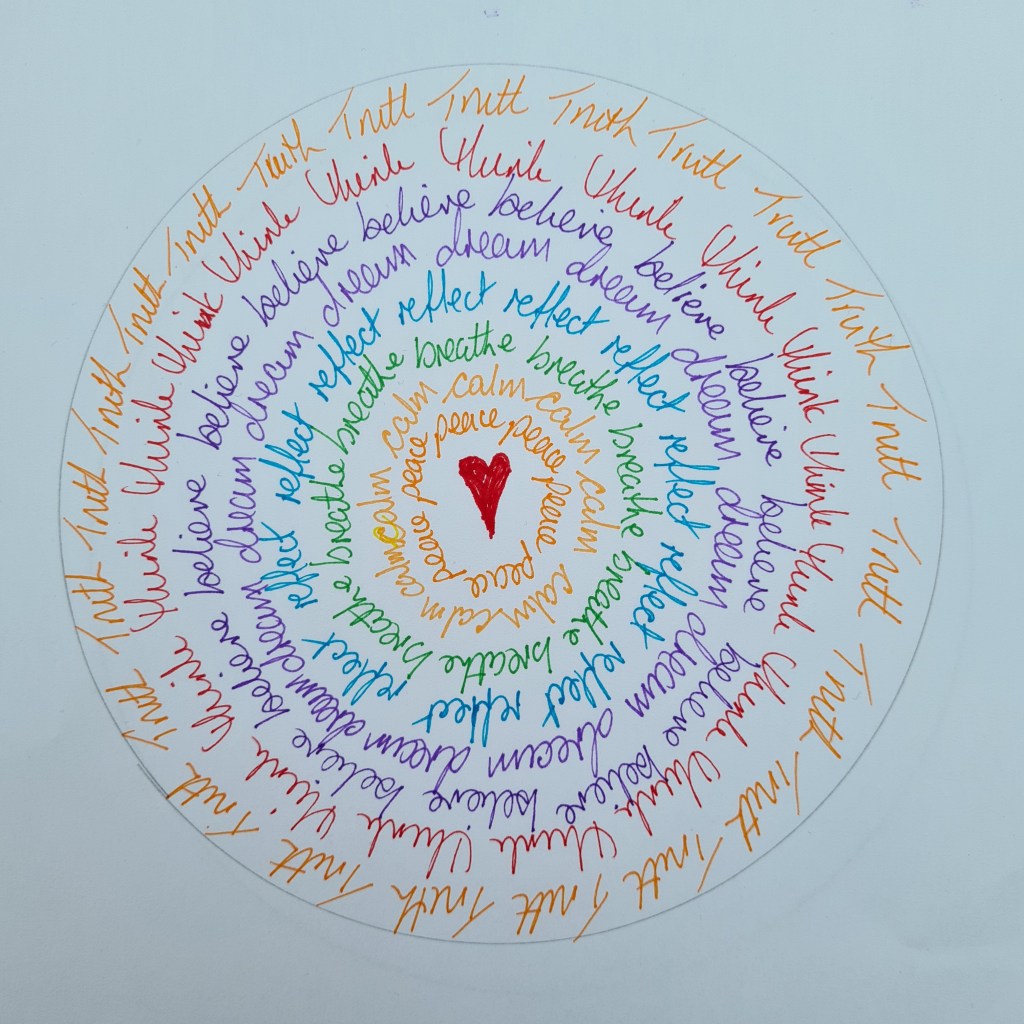 Truth Truth Truth Truth Truth Truth Truth Truth Truth Truth Truth Truth Truth Truth Truth Truth Truth Truth Truth Truth Truth Truth Truth
Think Think Think Think Think Think Think Think Think Think Think Think Think Think Think Think Think Think Think
believe believe believe believe believe believe believe believe believe believe believe believe believe believe
dream dream dream dream dream dream dream dream dream dream dream dream dream
reflect reflect reflect reflect reflect reflect reflect reflect reflect reflect reflect reflect
breathe breathe breathe breathe breathe breathe breathe breathe breathe
calm calm calm calm calm calm calm calm calm
peace peace peace peace peace peace peace